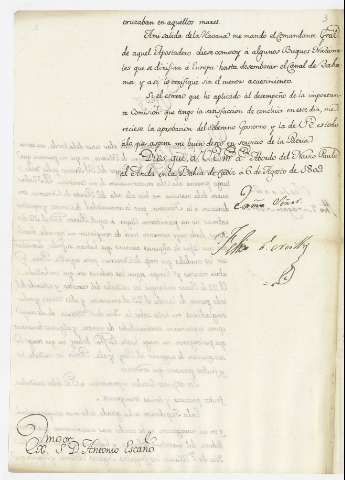 3
cruzaban en aquellos mares.
A mi salida de la Havana me mando el Comandante Gral
de aquel Apostadero diese comvoy á algunos Buques
tes que se dirijian á Europa hasta desembocar el Canal de Baha
ma y asi lo verifiqué sin el menor acaecimiento.
Si el esmero que he aplicado al desempeño de la importan
te Comision que tengo la satisfaccion de concluir en este dia, me
reciese la aprobacion del Soberano Govierno y la de V.E. estado
ala par agora mi buen deseo en servicio de la Patria.
Dios gue á V.E. m.s a.s Abordo del Navio
al Ancla en la Bahia de Cadiz á 6 de Agosto de 1809
Exmo Señor
Felix
Exmo Sor D. Antonio Escaño